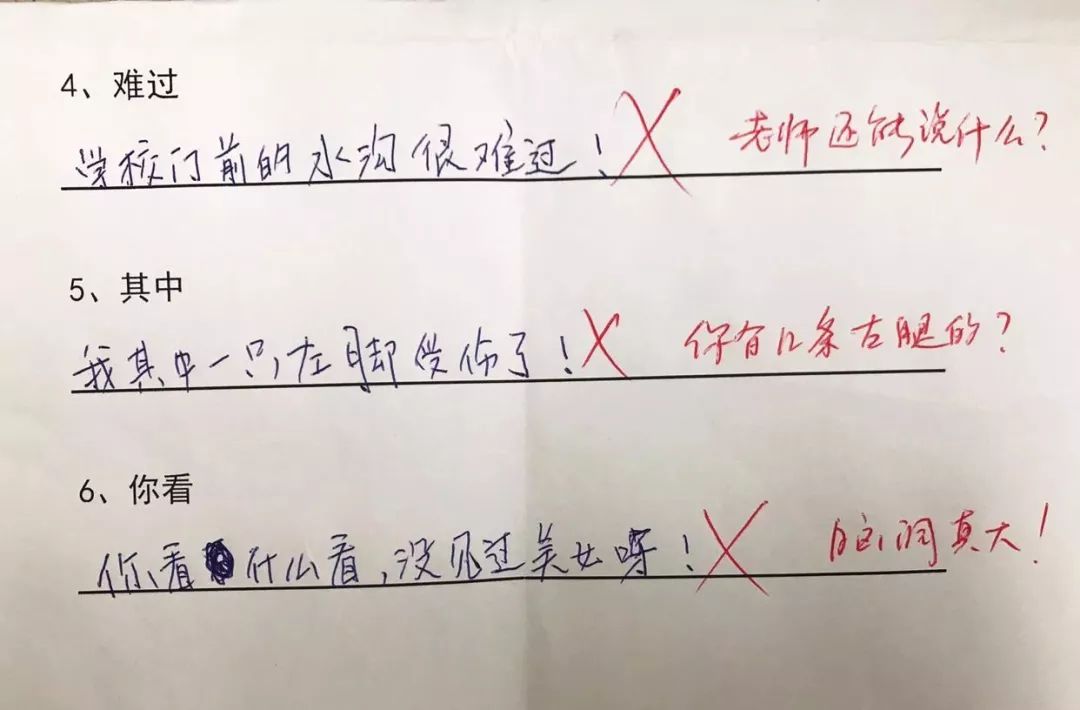 4、难过
学校门前的水沟很难过！ 老师还能说什么？
5、其中
我其中一只左脚受伤了！ 你有几条右腿的？
6、你看
你看什么看，没见过美女呀！ 脑洞真大！